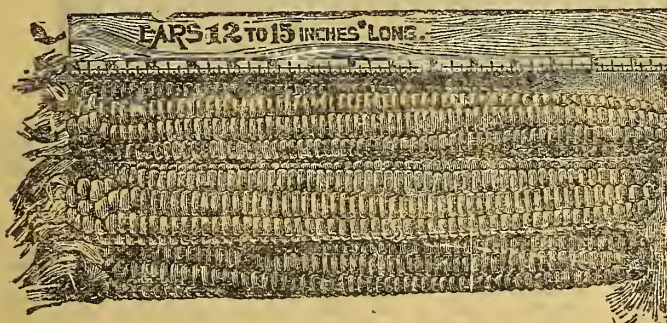 EARS 12 TO 15 INCHES LONG.